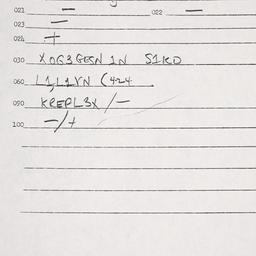 021 — 022 —
023 —
024 +
030 XOG3GEGN 1N S1KO
060 L1,L1VN (424
090 KREPL3X/—
100 —/+